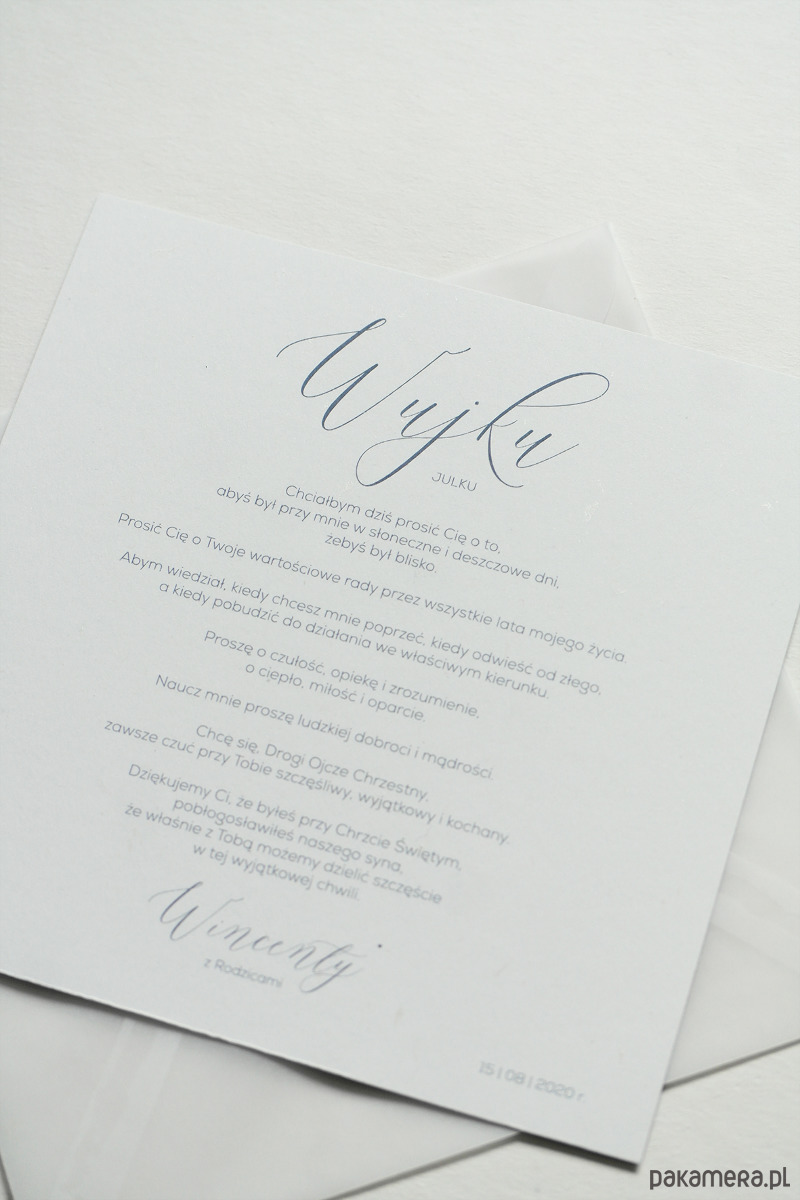 Wujku
JULKU
Chciałbym dziś prosić Cię o to,
abyś był przy mnie w słoneczne i deszczowe dni,
żebyś był blisko.
Prosić Cię o Twoje wartościowe rady przez wszystkie lata mojego życia.
Abym wiedział, kiedy chcesz mnie poprzeć, kiedy odwieść od złego,
a kiedy pobudzić do działania we właściwym kierunku.
Proszę o czułość, opiekę i zrozumienie,
o ciepło, miłość i oparcie.
Naucz mnie proszę ludzkiej dobroci i mądrości.
Chcę się, Drogi Ojcze Chrzestny,
zawsze czuć przy Tobie szczęśliwy, wyjątkowy i kochany.
Dziękujemy Ci, że byłeś przy Chrzcie Świętym,
pobłogosławiłeś naszego syna,
że właśnie z Tobą możemy dzielić szczęście
w tej wyjątkowej chwili.
Wincenty
z Rodzicami
15 | 08 | 2020 r.
pakamera.pl